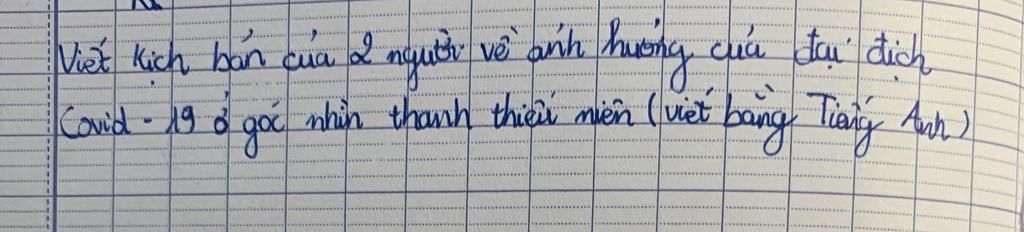 Viết kịch bản của 2 người về ảnh hưởng của đại dịch
Covid - 19 ở góc nhìn thanh thiếu niên (viết bằng Tiếng Anh)